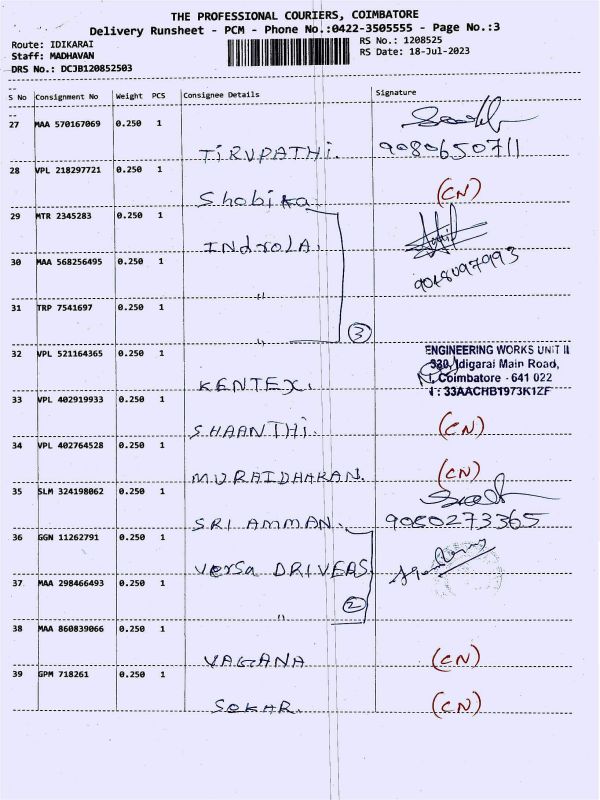 THE PROFESSIONAL COURIERS, COIMBATORE
Delivery Runsheet - PCM - Phone No.:0422-3505555 - Page No.:3
Route: IDIKARAI
RS No.: 1208525
Staff: MADHAVAN
RS Date: 18-Jul-2023
DRS No.: DCJB120852503
S No Consignment No Weight PCS Consignee Details Signature
27 MAA 570167069 0.250 1
TIRUPATHI. 9080650711
28 VPL 218297721 0.250 1
Shobika. (CN)
29 MTR 2345283 0.250 1
INdroLA.
30 MAA 568256495 0.250 1
"
31 TRP 7541697 0.250 1
" 3
32 VPL 521164365 0.250 1
ENGINEERING WORKS UNIT II
330, Idigarai Main Road,
Coimbatore - 641 022
: 33AACHB1973K1ZF
KENTEX.
33 VPL 402919933 0.250 1
SHAANTHI. (CN)
34 VPL 402764528 0.250 1
MURAIDHARAN. (CN)
35 SLM 324198062 0.250 1
SRI AMMAN. 9080273365
36 GGN 11262791 0.250 1
Versa DRIVEAS
37 MAA 298466493 0.250 1
" 2
38 MAA 860839066 0.250 1
VAGANA (CN)
39 GPM 718261 0.250 1
SOKAR. (CN)